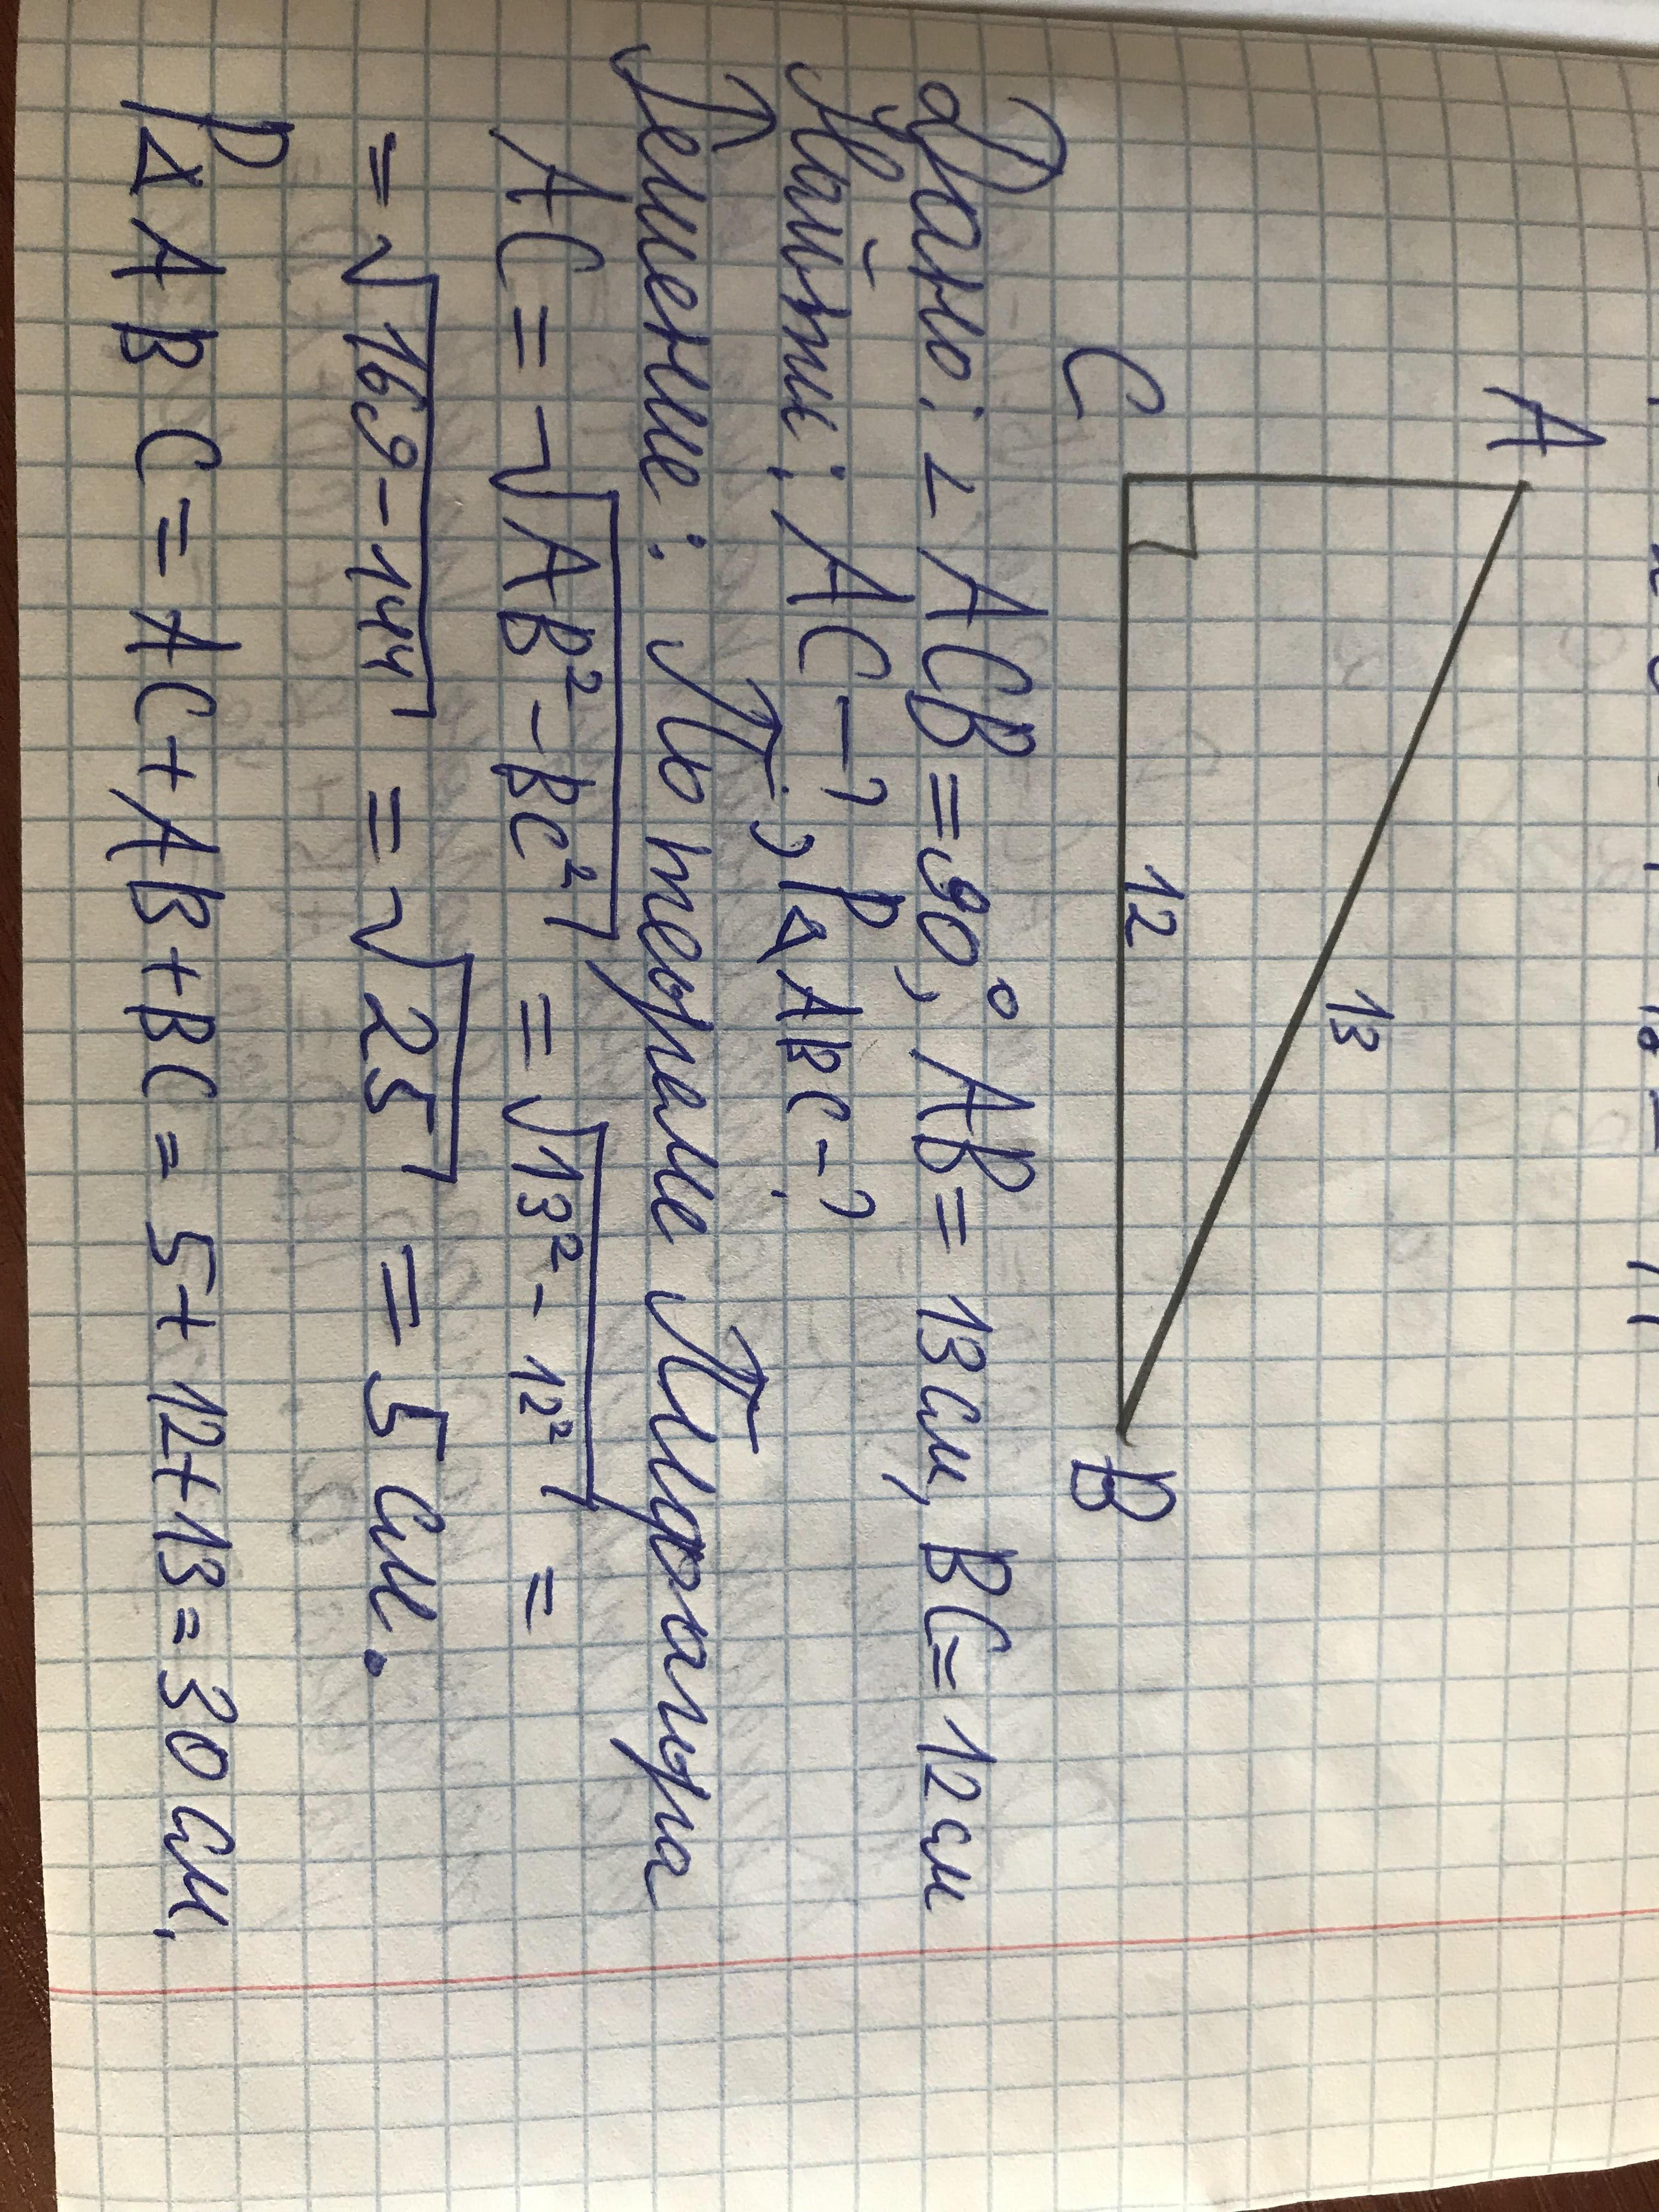 A
13
C
12
B
Дано: ∠ACB=90°, AB=13см, BC=12см
Найти: AC-?, P△ABC-?
Решение: По теореме Пифагора
AC=√AB²-BC²=√13²-12²=
=√169-144=√25=5см.
P△ABC=AC+AB+BC=5+12+13=30см.